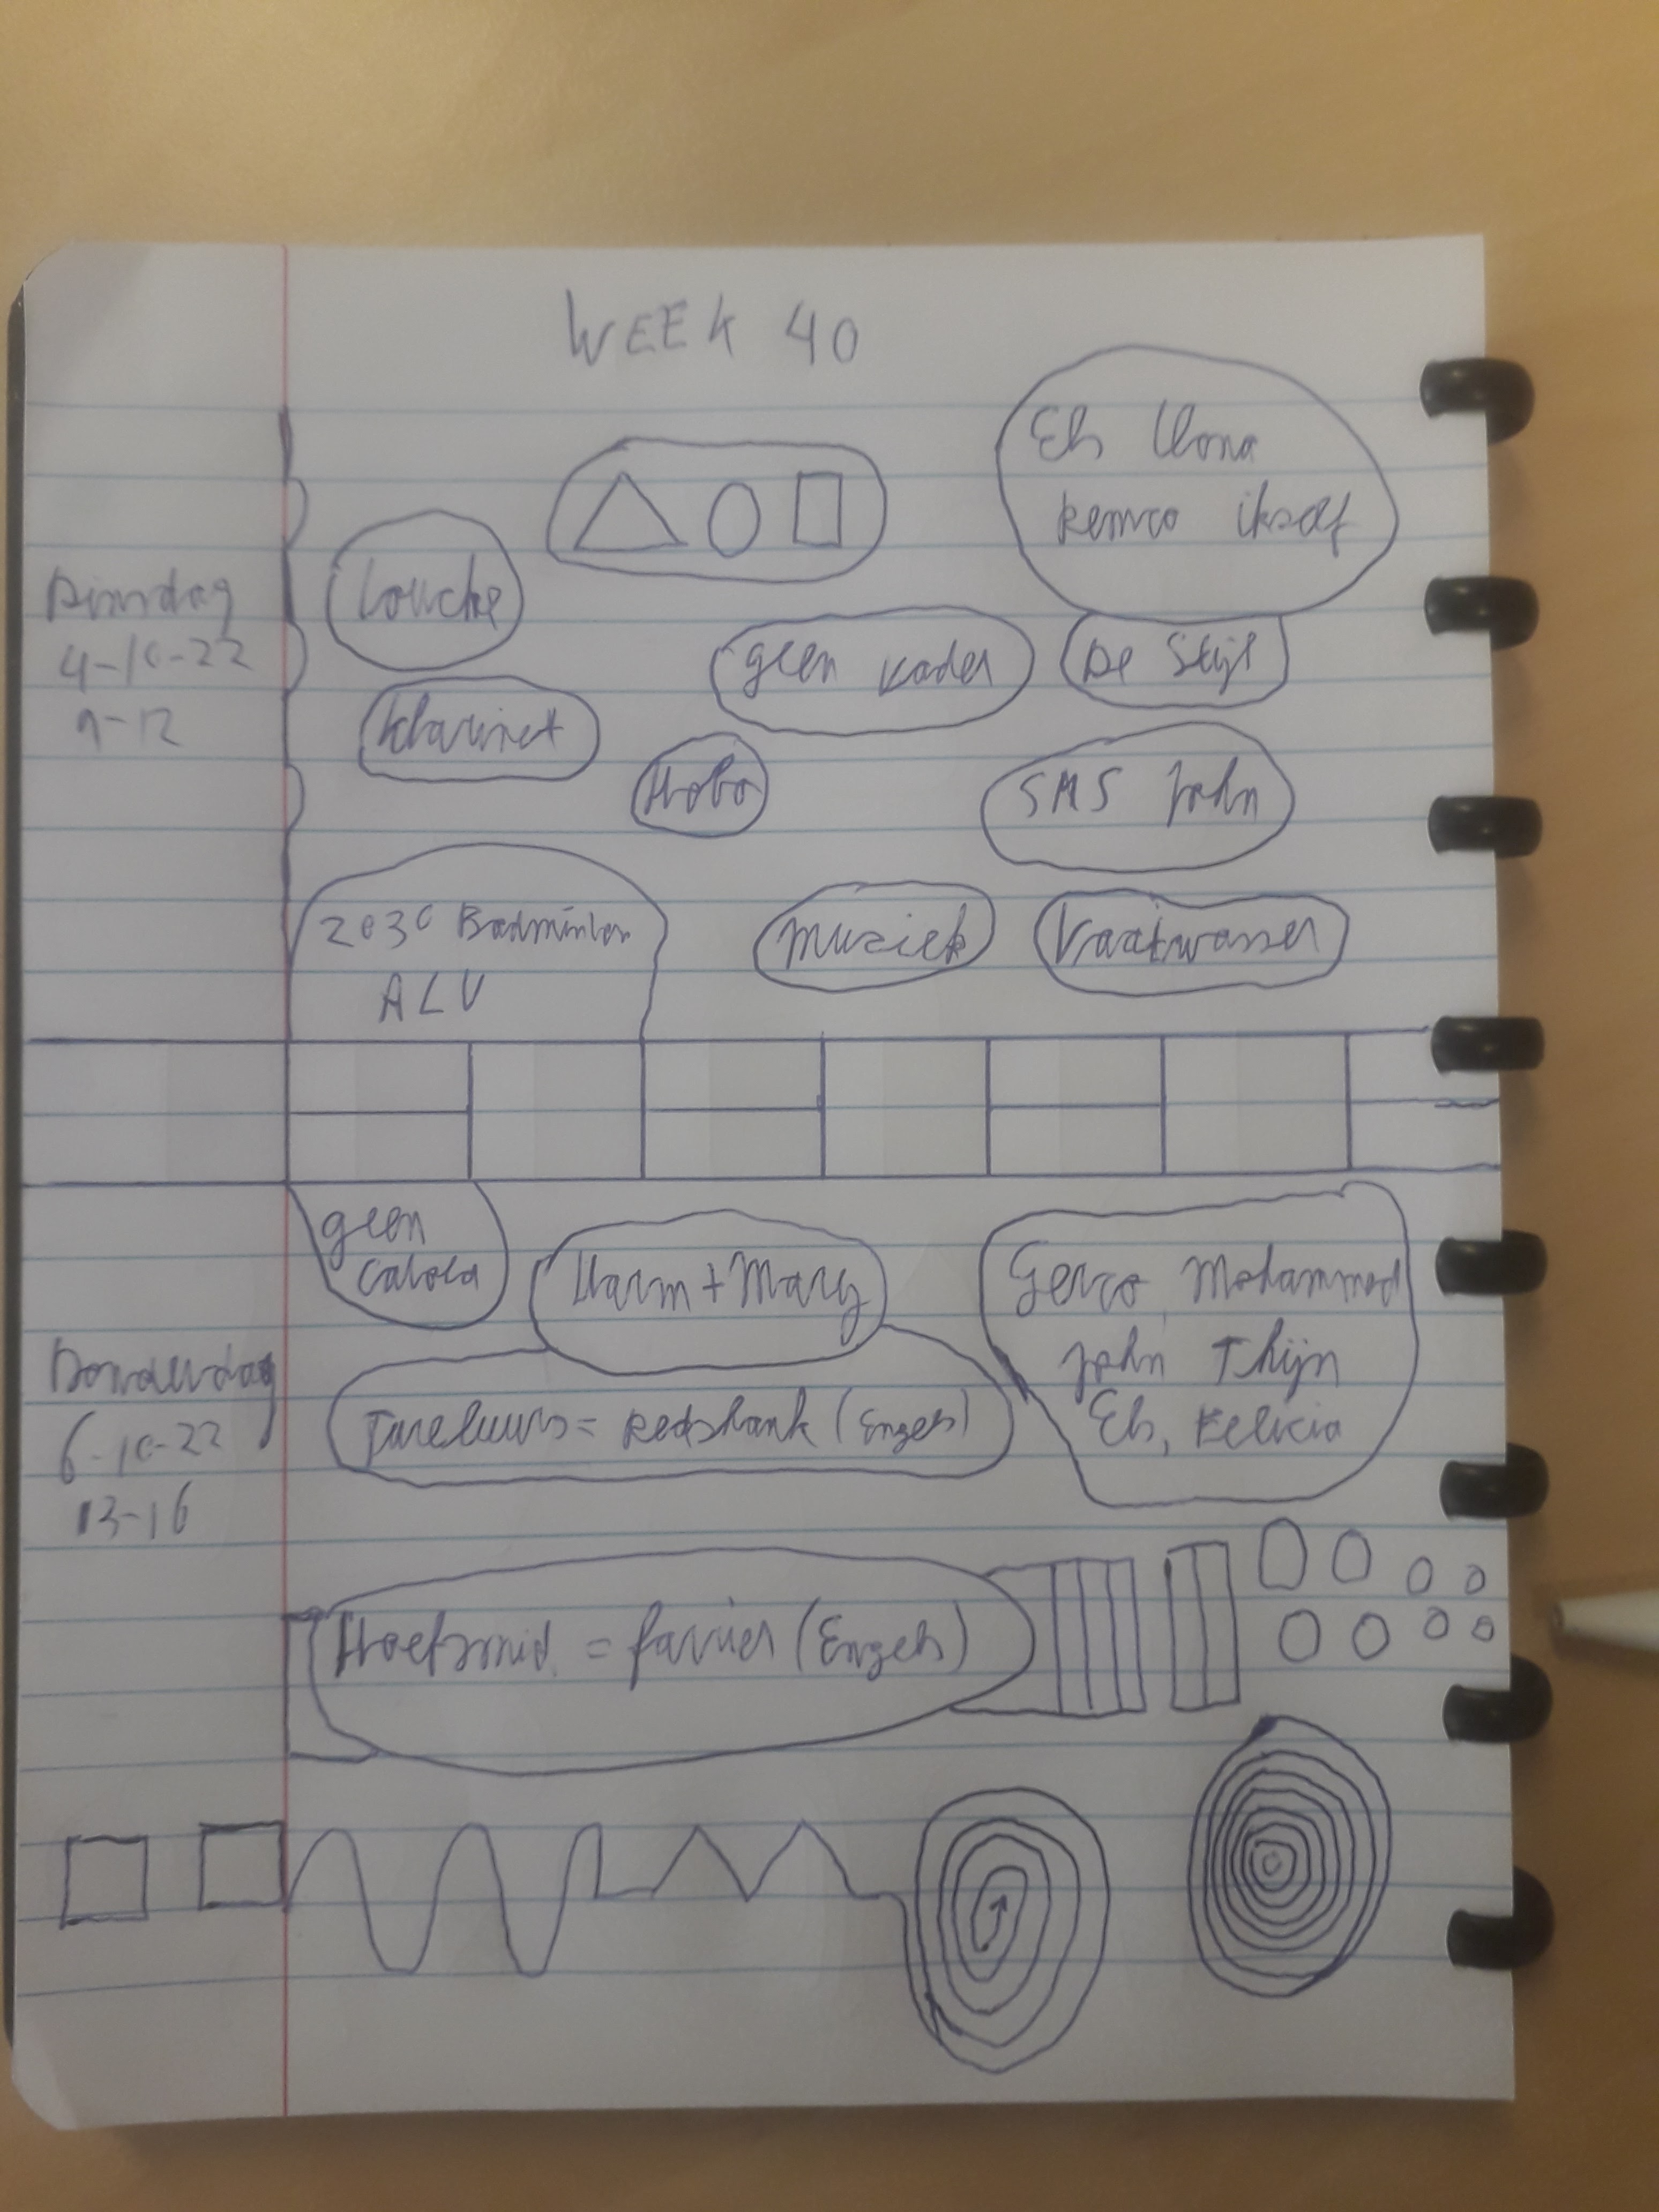 WEEK 40
Dinsdag
4-10-22
9-12
Els Ilona
Remco ikzelf
Loucke
geen kader
De Stijl
Klarinet
Hobo
SMS John
2030 Badminton
ALV
Muziek
Vaatwasser
Donderdag
6-10-22
13-16
geen
Harm + Mary
Gerco, Mohammed
John Thijn
Els, Felicia
Tureluurs = Redshank (Engels)
Hoefsmid. = farrier (Engels)